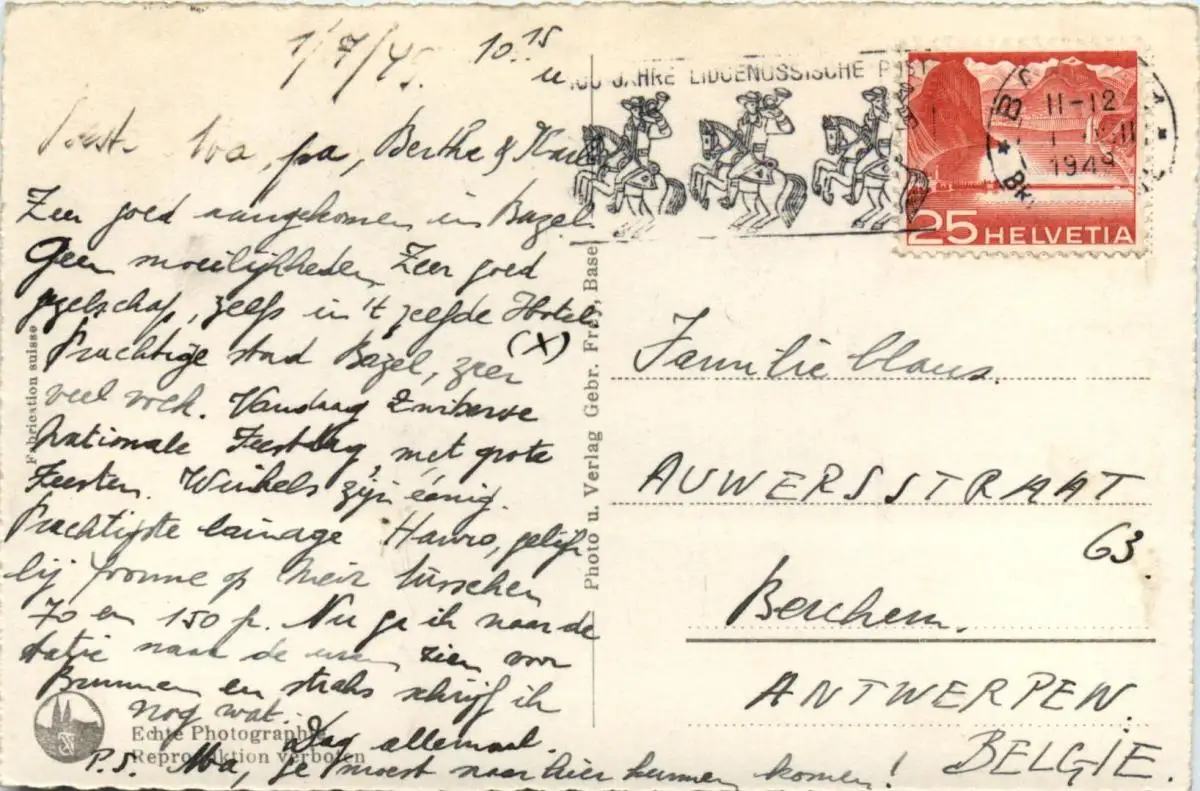 1/7/49. 10.15 u
Ma, pa, Berthe &
Zeer goed aangekomen in Bazel.
Geen moeilijkheden. Zeer goed
gezelschap, zelfs in 't zelfde Hotel
(X)
Prachtige stad Bazel, zeer
veel volk. Vandaag Zwitserse
Nationale Feestdag, met grote
Feesten. Winkels zijn éénig.
Prachtigste lainage Hawro, gelijk
bij Yvonne op Meir tusschen
70 en 150 fr. Nu ga ik naar de
statie naar de uren zien voor
Brunnen en straks schrijf ik
nog wat.
Dag allemaal.
P.S. Ma, je moest naar hier kunnen komen!
Fabrication suisse
Echte Photographie
Reproduktion verboten
Photo u. Verlag Gebr. Frey, Basel
100 JAHRE EIDGENÖSSISCHE POST
11-12
1949
25 HELVETIA
Familie Claus.
AUWERSSTRAAT
63
Berchem.
ANTWERPEN.
BELGIE.